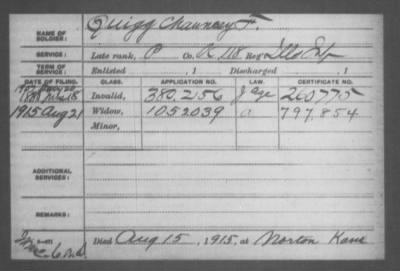 NAME OF SOLDIER: Quigg Chauncey F.
SERVICE: Late rank, P Co. A, 118 Reg't Ills Inf
TERM OF SERVICE: Enlisted , 1 Discharged , 1
DATE OF FILING. CLASS. APPLICATION NO. LAW. CERTIFICATE NO.
Invalid, 380.256 J Age 260775
1915 Aug 21 Widow, 1052039 a 797.854
Minor,
ADDITIONAL SERVICES:
REMARKS:
Died Aug 15, 1915, at Norton Kans